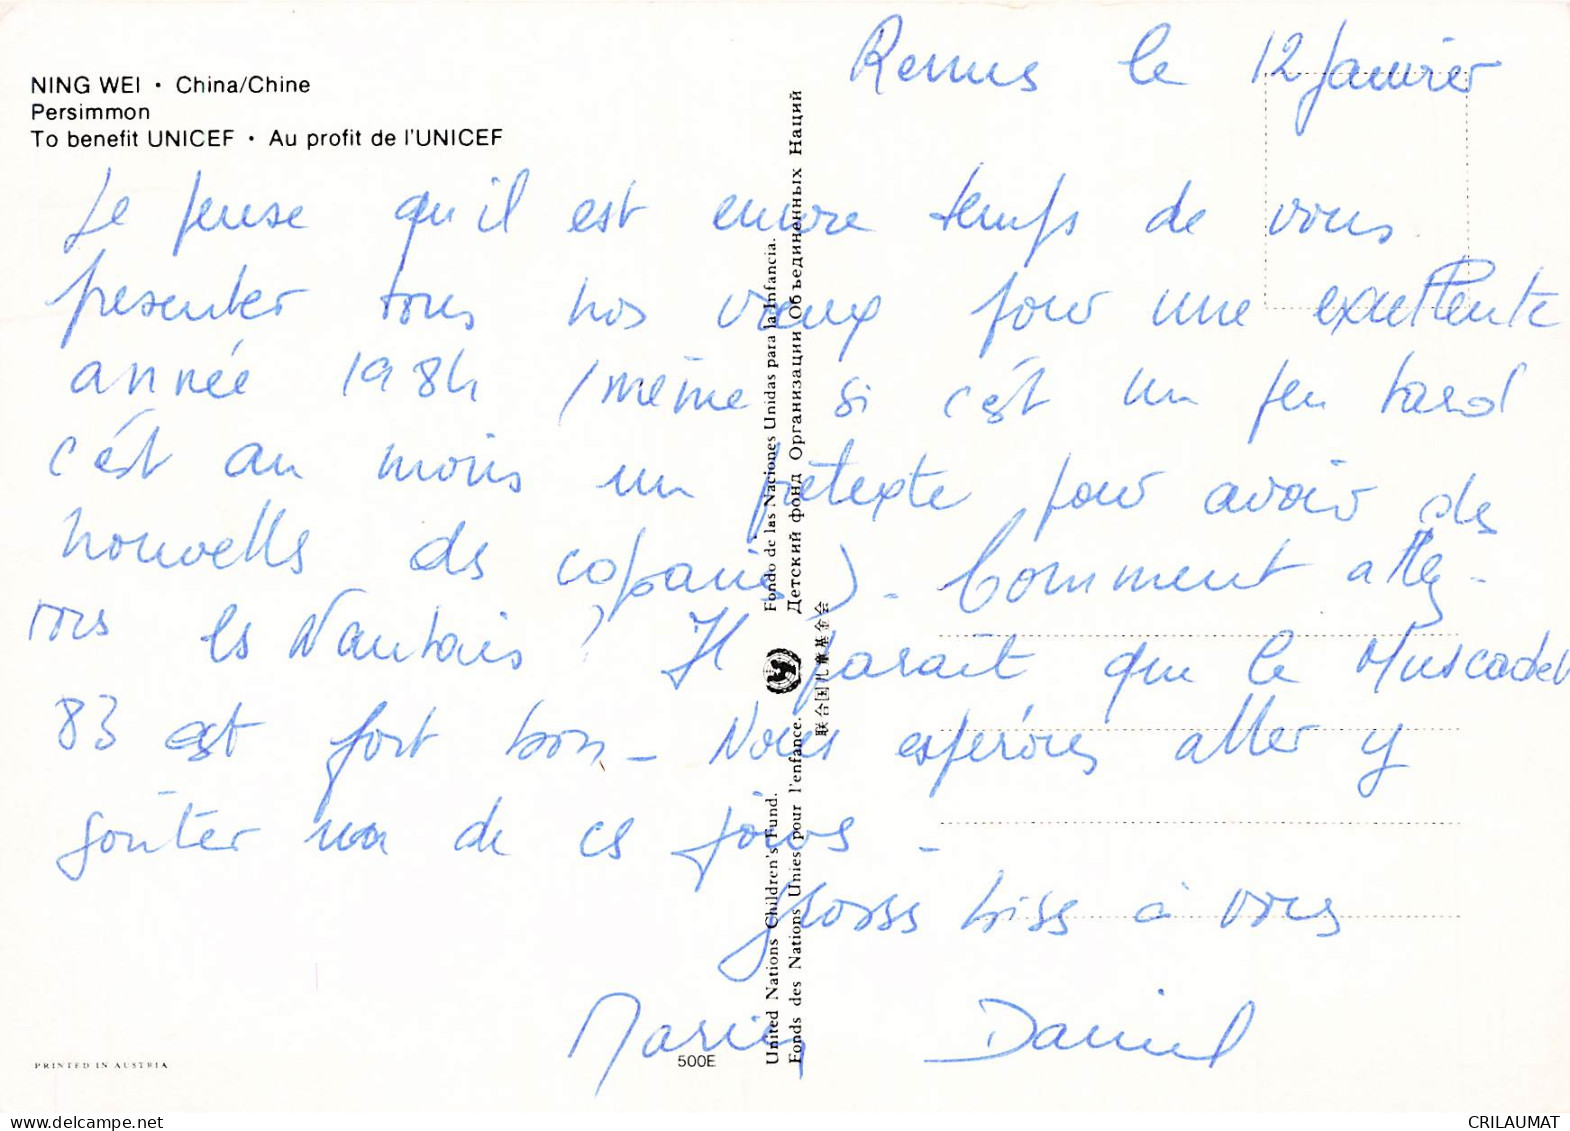 NING WEI • China/Chine
Persimmon
To benefit UNICEF • Au profit de l'UNICEF
Rennes le 12 Janvier
Je pense qu'il est encore temps de vous
presenter tous nos voeux pour une excellente
année 1984 (même si c'est un peu tard
c'est au moins un prétexte pour avoir des
nouvelles des copains). Comment allez-
vous les Nantais ? Il parait que le Muscadet
83 est fort bon - Nous espérons aller y
goûter un de ces jours -
grosses bises à vous
Daniel
United Nations Children's Fund. Fondo de las Naciones Unidas para la Infancia.
Fonds des Nations Unies pour l'enfance. Детский фонд Организации Объединенных Наций
联合国儿童基金会
PRINTED IN AUSTRIA
500E
www.delcampe.net
CRILAUMAT